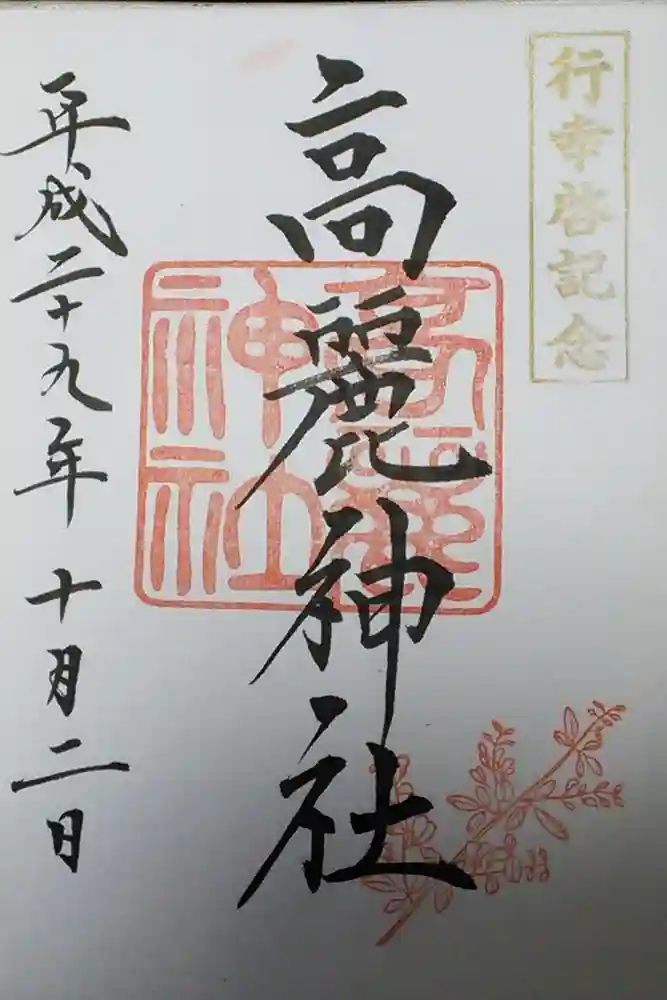 行幸啓記念
高麗神社
高麗神社
平成二十九年十月二日